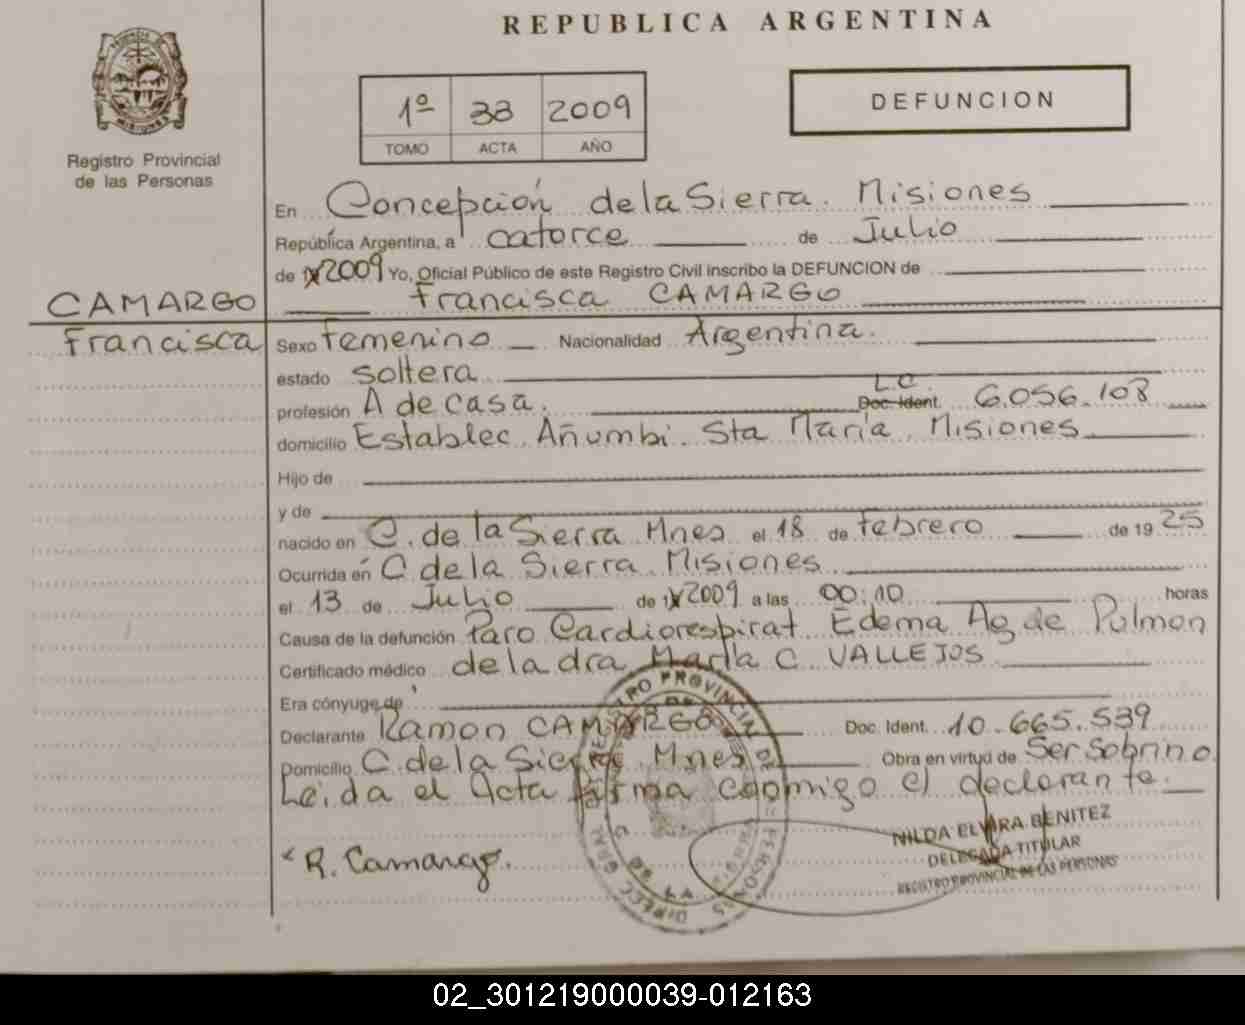 REPUBLICA ARGENTINA
PROVINCIA DE MISIONES
Registro Provincial
de las Personas
1º 33 2009
TOMO ACTA AÑO
DEFUNCION
En Concepción de la Sierra. Misiones
República Argentina, a catorce de Julio
de 2009 Yo, Oficial Público de este Registro Civil inscribo la DEFUNCION de
CAMARGO Francisca CAMARGO
Francisca Sexo Femenino Nacionalidad Argentina.
estado soltera
L.C.
profesión A de casa. Doc. Ident. 6.056.108
domicilio Establec. Añumbi. Sta María. Misiones
Hijo de
y de
nacido en C. de la Sierra Mnes el 18 de Febrero de 19 25
Ocurrida en C de la Sierra. Misiones
el 13 de Julio de 2009 a las 00:10 horas
Causa de la defunción Paro Cardiorespirat. Edema Ag. de Pulmon
Certificado médico de la dra María C VALLEJOS
Era cónyuge de
Declarante Ramon CAMARGO Doc. Ident. 10.665.539
Domicilio C. de la Sierra Mnes Obra en virtud de Ser Sobrino.
Leida el Acta firma conmigo el declarante.
R. Camargo.
NILDA ELVIRA BENITEZ
DELEGADA TITULAR
REGISTRO PROVINCIAL DE LAS PERSONAS
02_301219000039-012163